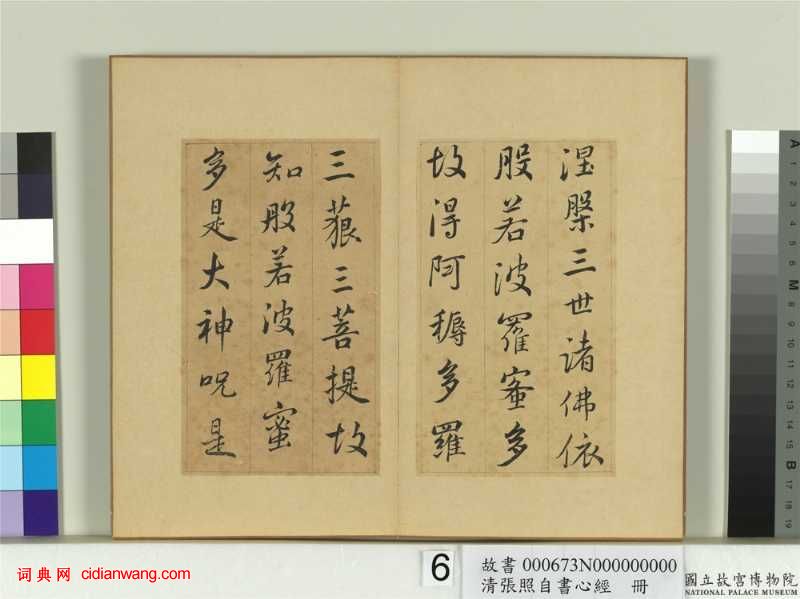 涅槃三世諸佛依
般若波羅蜜多
故得阿耨多羅
三藐三菩提故
知般若波羅蜜
多是大神呪是
A 1 2 3 4 5 6 M 8 9 10 11 12 13 14 15 B 17 18 19
6
故書 000673N000000000
清張照自書心經 冊
國立故宮博物院
NATIONAL PALACE MUSEUM
词典网 cidianwang.com